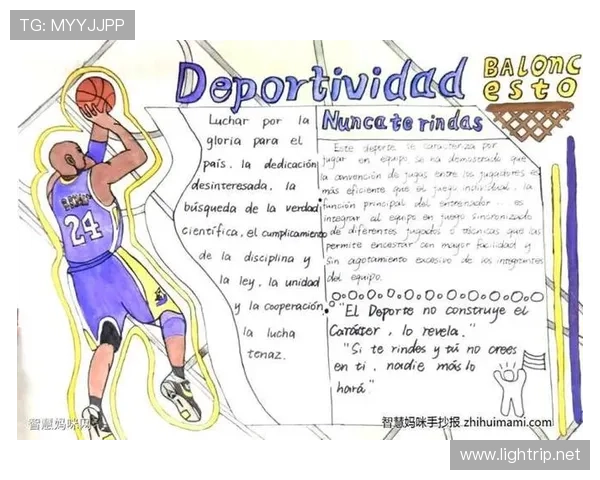 TG: MYYJJPP
Deportividad
BALONC
esto
Nunca te rindas
Luchar por la
gloria para el
país, la dedicación
desinteresada, la
búsqueda de la verdad
científica, el cumplicamiento
de la disciplina y
la ley, la unidad
y la cooperación,
la lucha
tenaz.
Este deporte se caracteriza por
jugar en equipo se ha demostrado que
la convención de jugas entre los jugadores es
más eficiente que el juego individual. la
función principal del entrenador.. es
integrar al equipo en juego sincronizado
de diferentes jugados o técnicas que las
permite encestar con mayor facilidad y
sin agotamiento excesivo de los integrantes
del equipo.
"El Deporte no construye el
Carácter, lo revela."
"Si te rindes y tú no crees
en ti, nadie más lo
hará."
24
智慧妈咪网
智慧妈咪手抄报.zhihuimami.com
www.lightrip.net